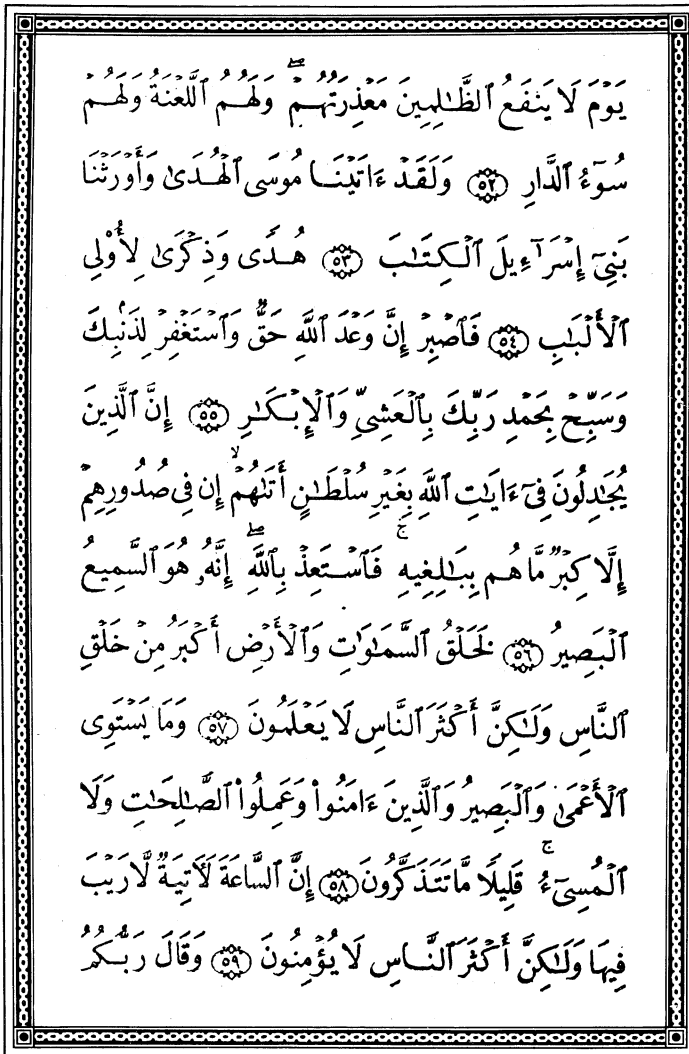 يَوْمَ لَا يَنفَعُ ٱلظَّٰلِمِينَ مَعْذِرَتُهُمْ ۖ وَلَهُمُ ٱللَّعْنَةُ وَلَهُمْ
سُوٓءُ ٱلدَّارِ ﴿٥٢﴾ وَلَقَدْ ءَاتَيْنَا مُوسَى ٱلْهُدَىٰ وَأَوْرَثْنَا
بَنِىٓ إِسْرَٰٓءِيلَ ٱلْكِتَٰبَ ﴿٥٣﴾ هُدًى وَذِكْرَىٰ لِأُو۟لِى
ٱلْأَلْبَٰبِ ﴿٥٤﴾ فَٱصْبِرْ إِنَّ وَعْدَ ٱللَّهِ حَقٌّ وَٱسْتَغْفِرْ لِذَنۢبِكَ
وَسَبِّحْ بِحَمْدِ رَبِّكَ بِٱلْعَشِىِّ وَٱلْإِبْكَٰرِ ﴿٥٥﴾ إِنَّ ٱلَّذِينَ
يُجَٰدِلُونَ فِىٓ ءَايَٰتِ ٱللَّهِ بِغَيْرِ سُلْطَٰنٍ أَتَىٰهُمْ ۙ إِن فِى صُدُورِهِمْ
إِلَّا كِبْرٌ مَّا هُم بِبَٰلِغِيهِ ۚ فَٱسْتَعِذْ بِٱللَّهِ ۖ إِنَّهُۥ هُوَ ٱلسَّمِيعُ
ٱلْبَصِيرُ ﴿٥٦﴾ لَخَلْقُ ٱلسَّمَٰوَٰتِ وَٱلْأَرْضِ أَكْبَرُ مِنْ خَلْقِ
ٱلنَّاسِ وَلَٰكِنَّ أَكْثَرَ ٱلنَّاسِ لَا يَعْلَمُونَ ﴿٥٧﴾ وَمَا يَسْتَوِى
ٱلْأَعْمَىٰ وَٱلْبَصِيرُ وَٱلَّذِينَ ءَامَنُوا۟ وَعَمِلُوا۟ ٱلصَّٰلِحَٰتِ وَلَا
ٱلْمُسِىٓءُ ۚ قَلِيلًا مَّا تَتَذَكَّرُونَ ﴿٥٨﴾ إِنَّ ٱلسَّاعَةَ لَـَٔاتِيَةٌ لَّا رَيْبَ
فِيهَا وَلَٰكِنَّ أَكْثَرَ ٱلنَّاسِ لَا يُؤْمِنُونَ ﴿٥٩﴾ وَقَالَ رَبُّكُمُ